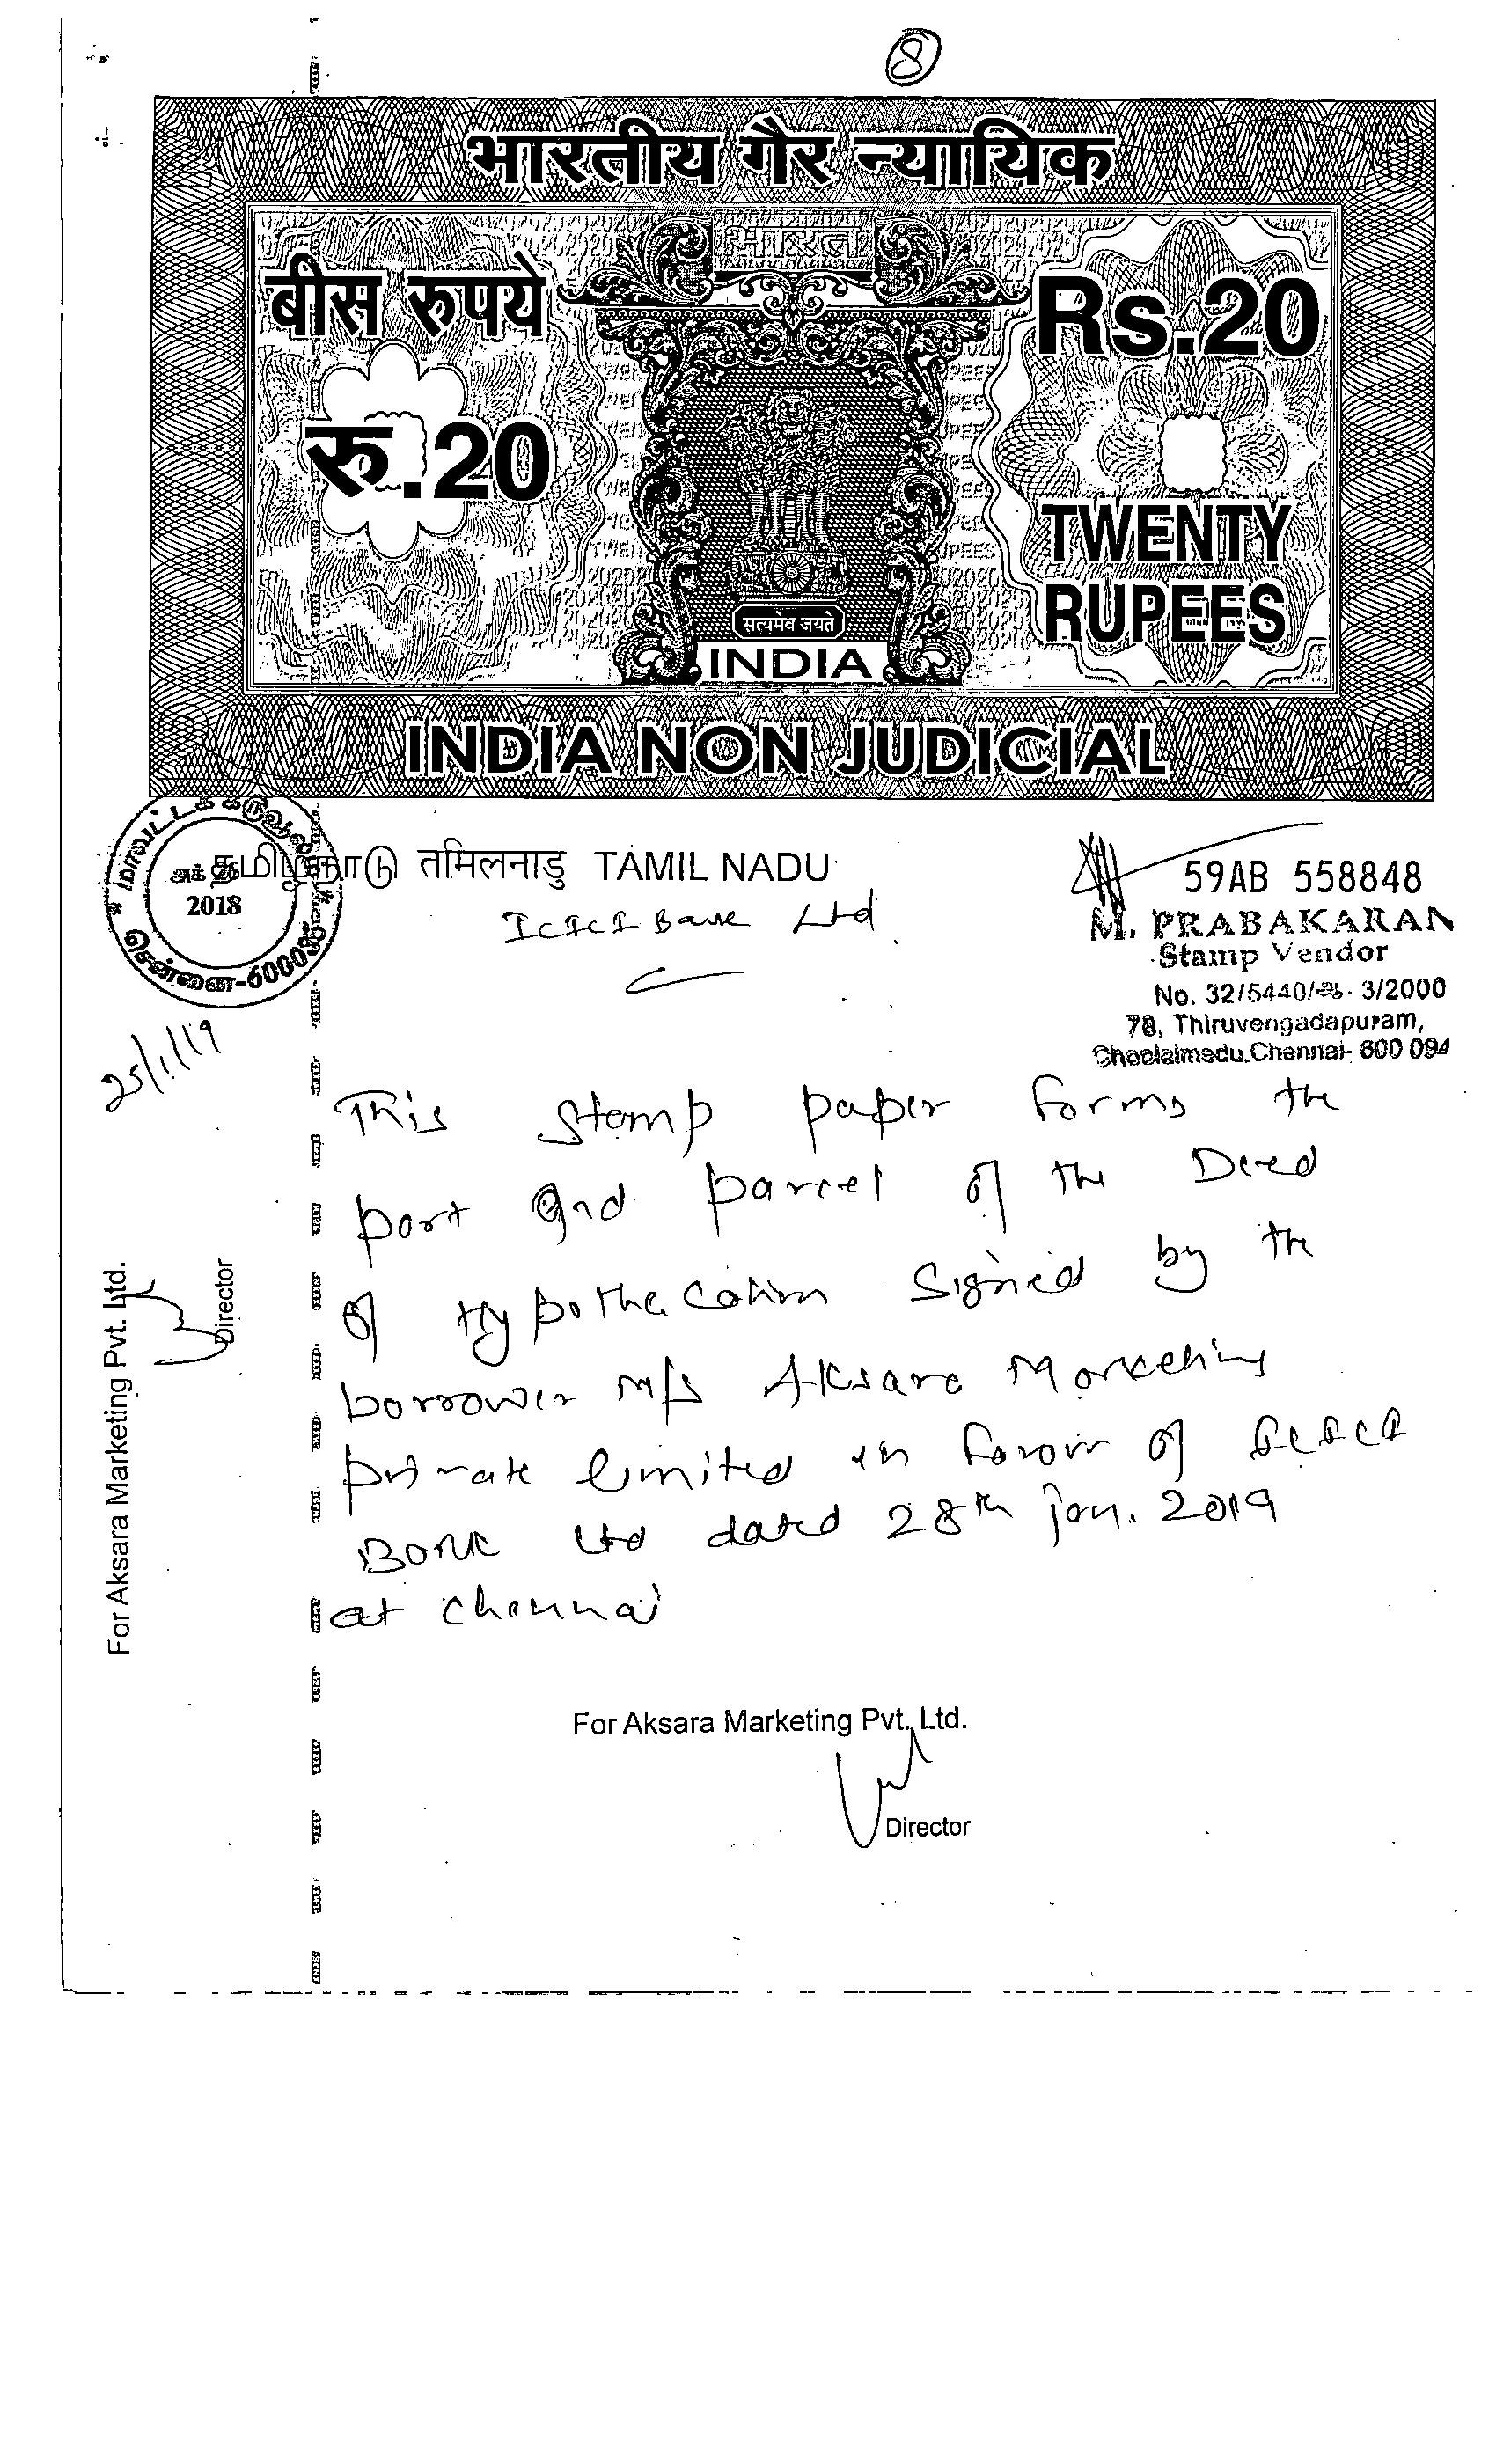 8
भारतीय गैर न्यायिक
भारत
बीस रुपये
Rs.20
रु.20
TWENTY
RUPEES
सत्यमेव जयते
INDIA
INDIA NON JUDICIAL
மாவட்டக் கருவூலம்
2018
சென்னை-600035
தமிழ்நாடு तमिलनाडु TAMIL NADU
59AB 558848
ICICI Bank Ltd
M. PRABAKARAN
Stamp Vendor
No. 32/5440/ஆ. 3/2000
78, Thiruvengadapuram,
Choolaimadu, Chennai- 600 094
25/1/19
This Stamp paper forms the
part and parcel of the Deed
of Hypothecation Signed by the
borrower M/s Aksara Marketing
private limited in favour of ICICI
Bank Ltd dated 28th Jan. 2019
at Chennai
For Aksara Marketing Pvt. Ltd.
Director
For Aksara Marketing Pvt. Ltd.
Director